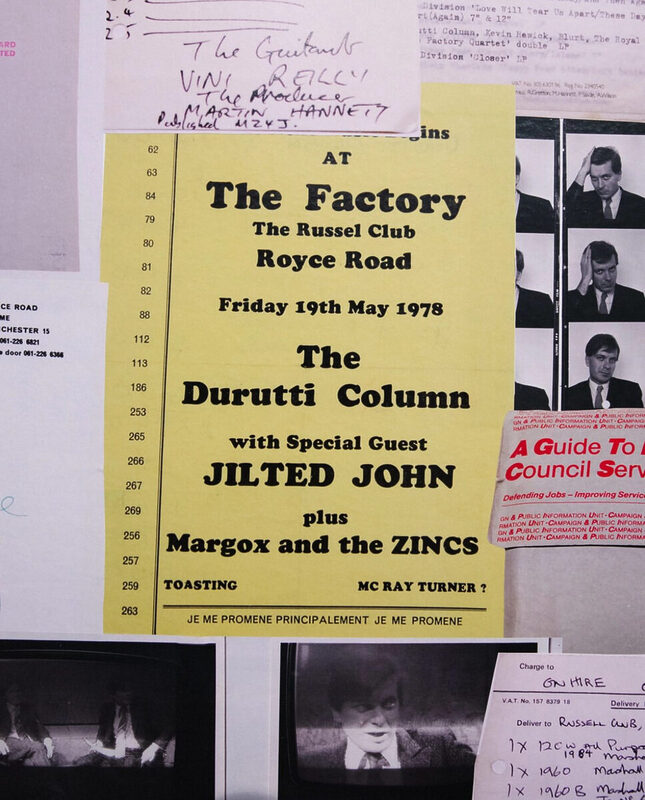 2.4
2.5
The Guitarist
VINI REILLY
The Producer
MARTIN HANNETT
Published MZ4J.
Division 'Love Will Tear Us Apart/These Day
rt(Again) 7" & 12"
utti Column, Kevin Hewick, Blurt, The Royal
Factory Quartet' double LP
Division 'Closer' LP
ARD
TED
62
63
84
79
80
81
82
88
112
113
186
253
265
266
267
269
256
257
259
263
AT
The Factory
The Russel Club
Royce Road
Friday 19th May 1978
The
Durutti Column
with Special Guest
JILTED JOHN
plus
Margox and the ZINCS
TOASTING MC RAY TURNER ?
JE ME PROMENE PRINCIPALEMENT JE ME PROMENE
CE ROAD
ME
CHESTER 15
061-226 6821
e door 061-226 6366
RMATION UNIT-CAMPAIGN & PUBLIC INFOR
A Guide To
Council Serv
Defending Jobs – Improving Service
GN & PUBLIC INFORMATION UNIT-CAMPAIGN
RMATION UNIT-CAMPAIGN & PUBLIC INFOR
GN & PUBLIC INFORMATION UNIT-CAMPAIGN
RMATION UNIT-CAMPAIGN & PUBLIC INFOR
Charge to
ON HIRE
V.A.T. No. 157 8379 18 Delivery
Deliver to RUSSELL CLUB,
1 X 120W
1984
1 X 1960 Marshall
1 X 1960 B Marshall